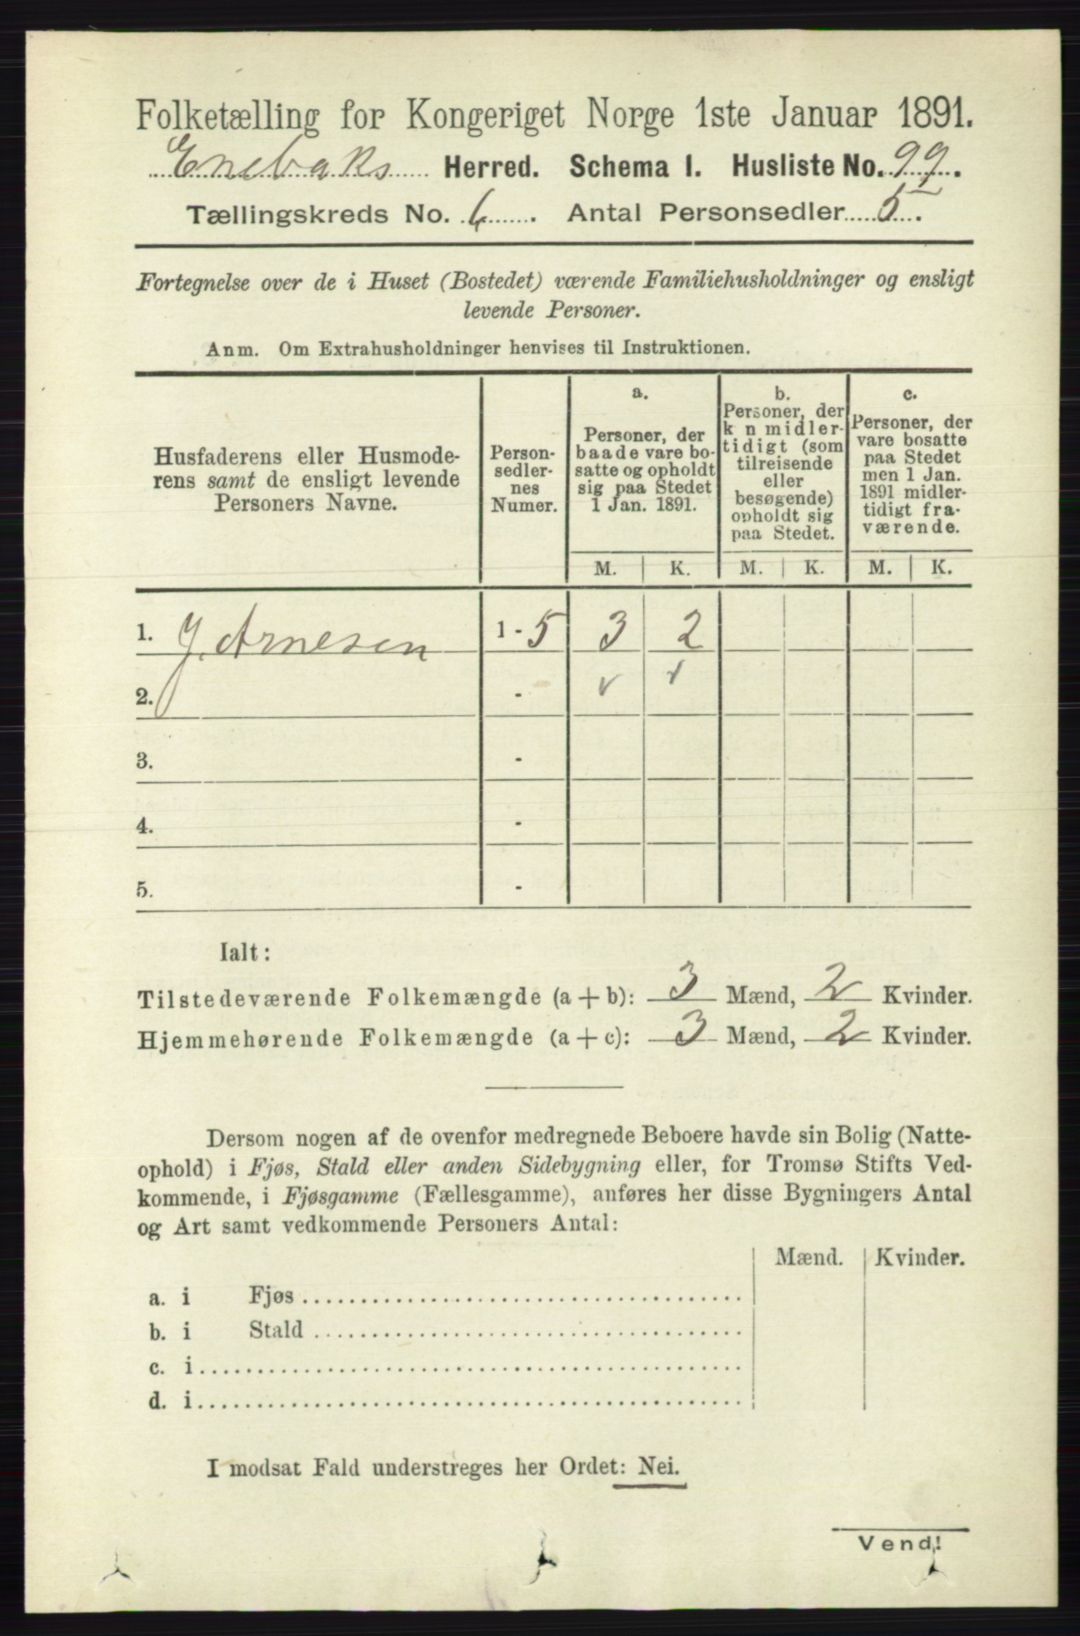 Folketælling for Kongeriget Norge 1ste Januar 1891.
Enebaks Herred. Schema I. Husliste No. 99.
Tællingskreds No. 6. Antal Personsedler 5.
Fortegnelse over de i Huset (Bostedet) værende Familiehusholdninger og ensligt
levende Personer.
Anm. Om Extrahusholdninger henvises til Instruktionen.
Husfaderens eller Husmode-
rens samt de ensligt levende
Personers Navne.
Person-
sedler-
nes
Numer.
a.
Personer, der
baade vare bo-
satte og opholdt
sig paa Stedet
1 Jan. 1891.
b.
Personer, der
k n midler-
tidigt (som
tilreisende
eller
besøgende)
opholdt sig
paa Stedet.
c.
Personer, der
vare bosatte
paa Stedet
men 1 Jan.
1891 midler-
tidigt fra-
værende.
M. K. M. K. M. K.
1. J. Arnesen 1 - 5 3 2
2. -
3. -
4. -
5. -
Ialt:
Tilstedeværende Folkemængde (a + b): 3 Mænd, 2 Kvinder.
Hjemmehørende Folkemængde (a + c): 3 Mænd, 2 Kvinder.
Dersom nogen af de ovenfor medregnede Beboere havde sin Bolig (Natte-
ophold) i Fjøs, Stald eller anden Sidebygning eller, for Tromsø Stifts Ved-
kommende, i Fjøsgamme (Fællesgamme), anføres her disse Bygningers Antal
og Art samt vedkommende Personers Antal:
Mænd. Kvinder.
a. i Fjøs
b. i Stald
c. i
d. i
I modsat Fald understreges her Ordet: Nei.
Vend!